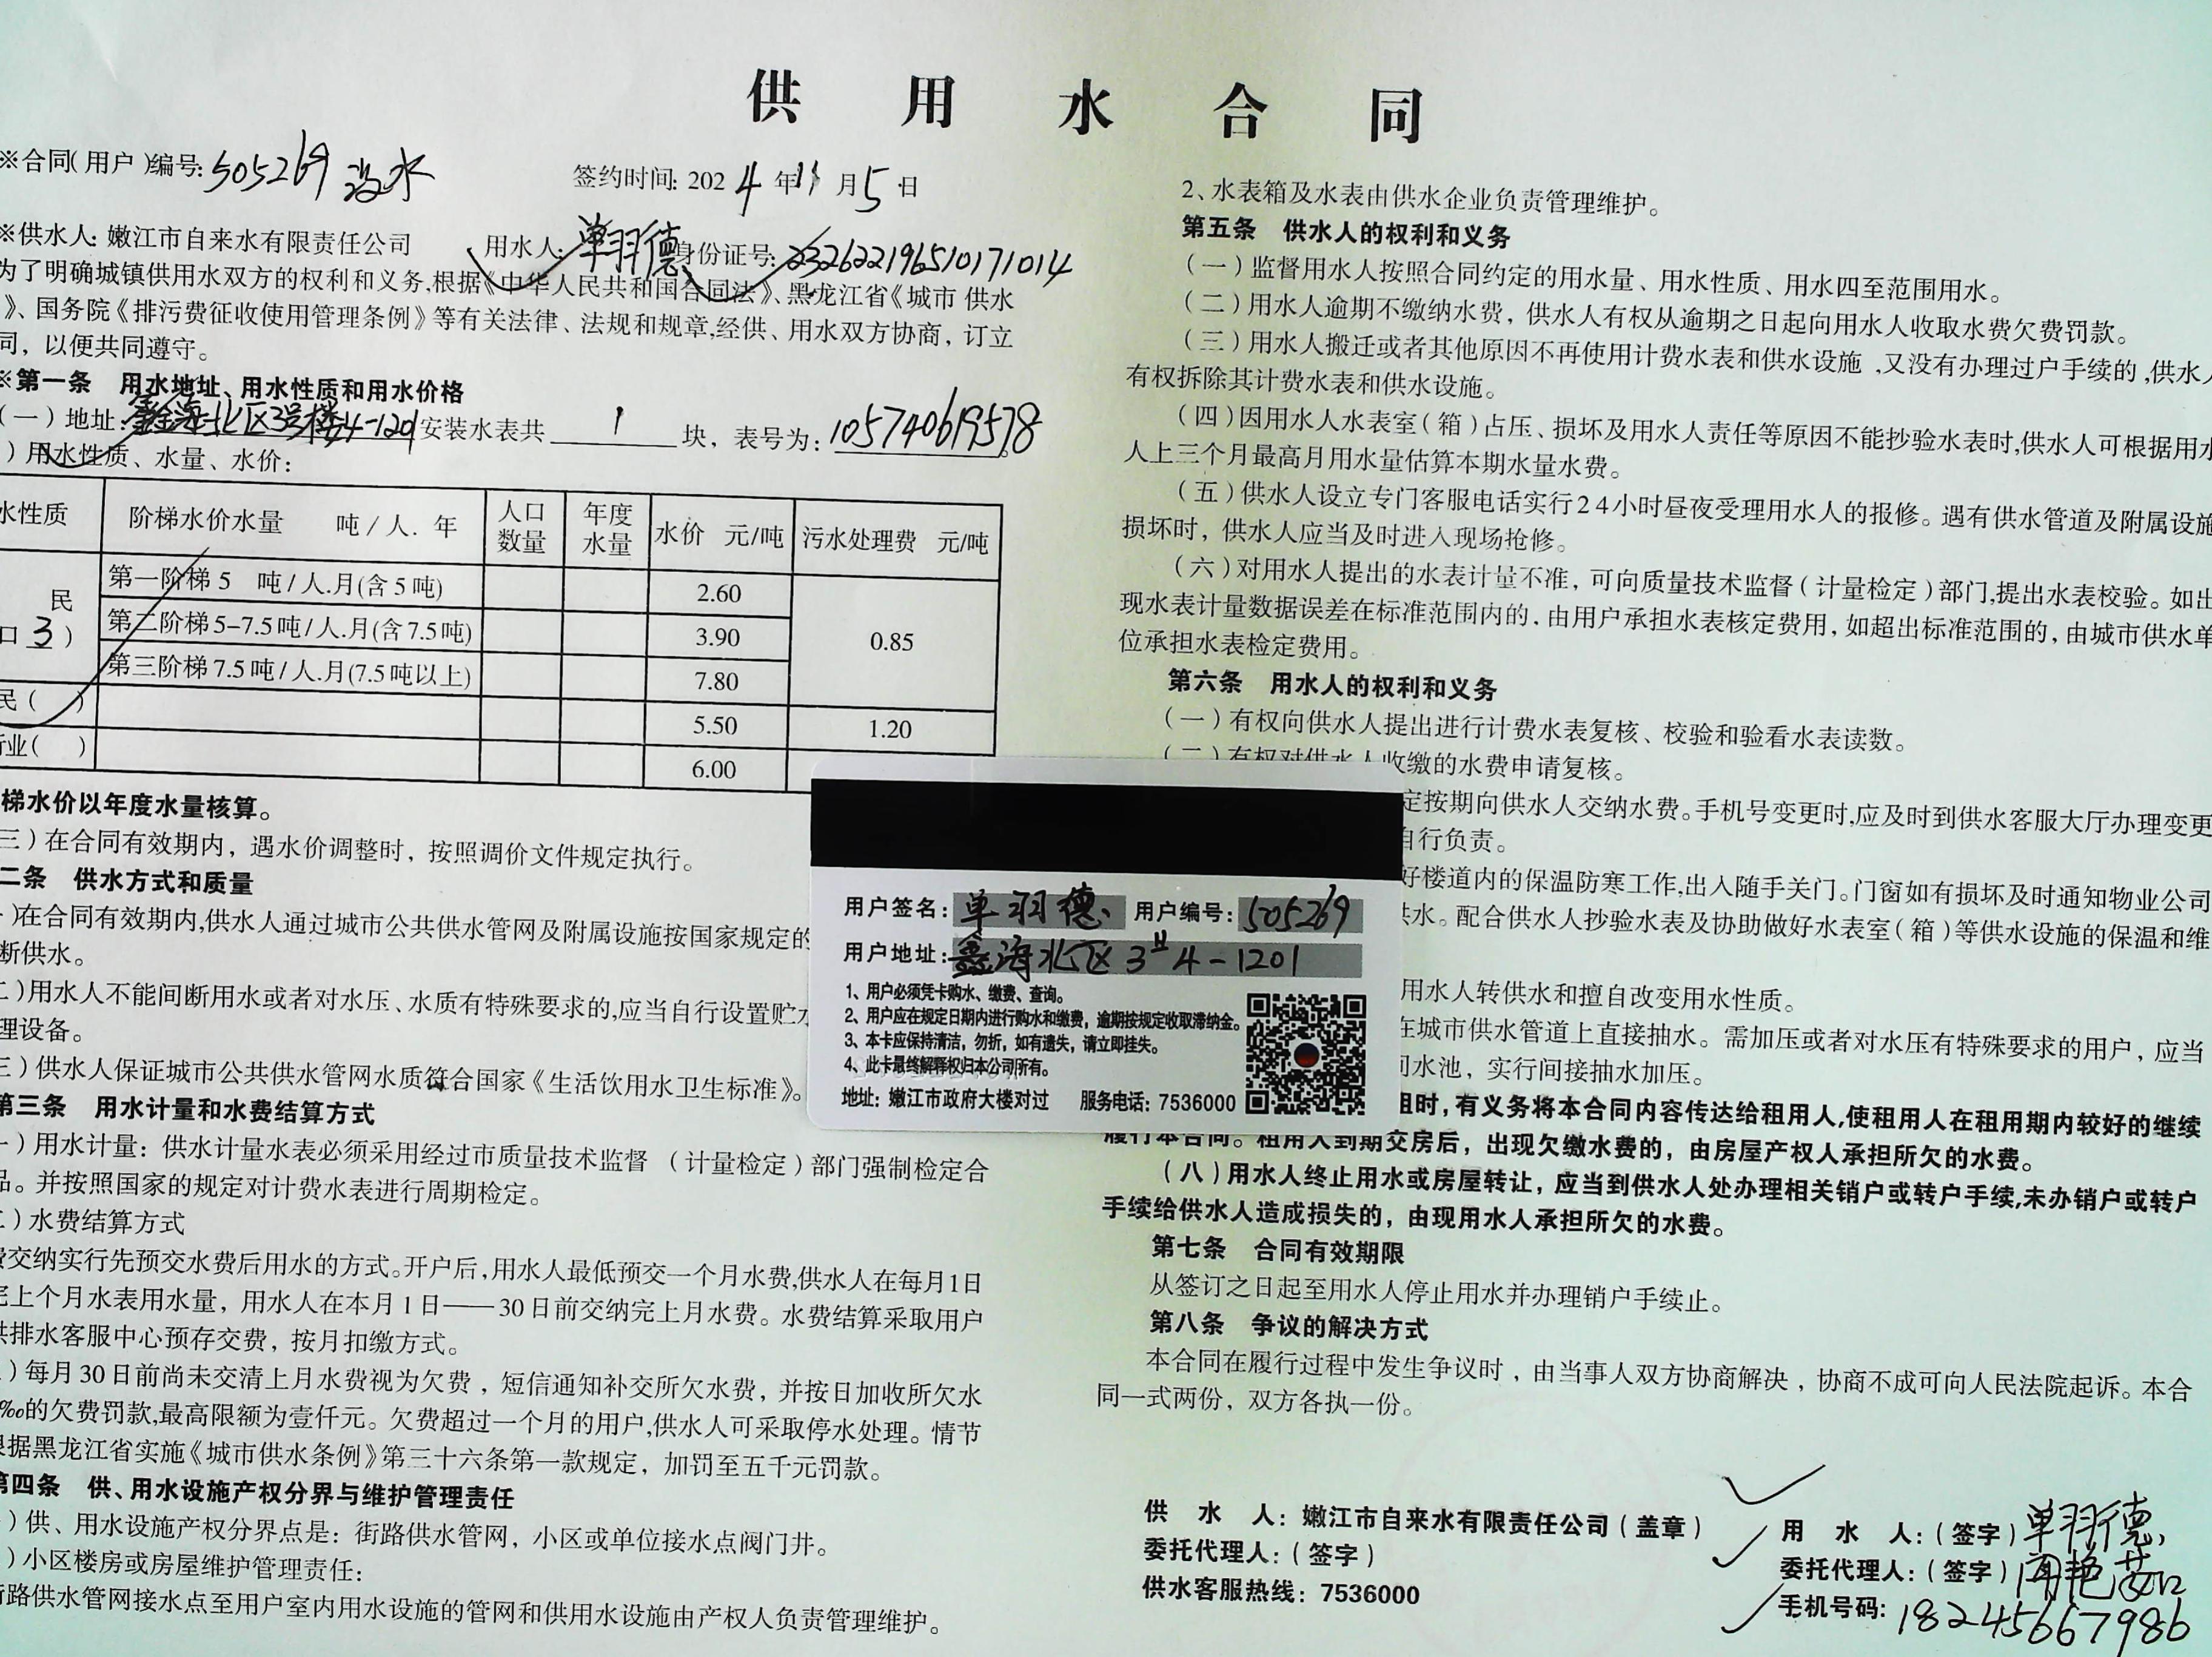 供 用 水 合 同
※合同(用户)编号:505269
签约时间: 2024年11月5日
※供水人: 嫩江市自来水有限责任公司 用水人: 单羽德 身份证号: 232622196510171014
为了明确城镇供用水双方的权利和义务,根据《中华人民共和国合同法》、黑龙江省《城市 供水
》、国务院《排污费征收使用管理条例》等有关法律、法规和规章,经供、用水双方协商，订立
同，以便共同遵守。
※第一条 用水地址、用水性质和用水价格
(一)地址:鑫海北区3号楼4-1201安装水表共 1 块，表号为: 105740619578。
)用水性质、水量、水价:
水性质 阶梯水价水量 吨/人.年 人口数量 年度水量 水价 元/吨 污水处理费 元/吨
民
口 3 )
第一阶梯 5 吨/人.月(含5吨) 2.60 0.85
第二阶梯5-7.5吨/人.月(含7.5吨) 3.90
第三阶梯7.5吨/人.月(7.5吨以上) 7.80
民( ) 5.50 1.20
行业( ) 6.00
梯水价以年度水量核算。
三)在合同有效期内，遇水价调整时，按照调价文件规定执行。
二条 供水方式和质量
)在合同有效期内,供水人通过城市公共供水管网及附属设施按国家规定的
断供水。
二)用水人不能间断用水或者对水压、水质有特殊要求的,应当自行设置贮水
理设备。
三)供水人保证城市公共供水管网水质符合国家《生活饮用水卫生标准》。
第三条 用水计量和水费结算方式
一)用水计量：供水计量水表必须采用经过市质量技术监督 (计量检定)部门强制检定合
品。并按照国家的规定对计费水表进行周期检定。
二)水费结算方式
费交纳实行先预交水费后用水的方式。开户后,用水人最低预交一个月水费,供水人在每月1日
完上个月水表用水量，用水人在本月1日——30日前交纳完上月水费。水费结算采取用户
供排水客服中心预存交费，按月扣缴方式。
)每月30日前尚未交清上月水费视为欠费，短信通知补交所欠水费，并按日加收所欠水
‰的欠费罚款,最高限额为壹仟元。欠费超过一个月的用户,供水人可采取停水处理。情节
根据黑龙江省实施《城市供水条例》第三十六条第一款规定，加罚至五千元罚款。
第四条 供、用水设施产权分界与维护管理责任
)供、用水设施产权分界点是：街路供水管网，小区或单位接水点阀门井。
)小区楼房或房屋维护管理责任:
街路供水管网接水点至用户室内用水设施的管网和供用水设施由产权人负责管理维护。
2、水表箱及水表由供水企业负责管理维护。
第五条 供水人的权利和义务
(一)监督用水人按照合同约定的用水量、用水性质、用水四至范围用水。
(二)用水人逾期不缴纳水费，供水人有权从逾期之日起向用水人收取水费欠费罚款。
(三)用水人搬迁或者其他原因不再使用计费水表和供水设施 ,又没有办理过户手续的,供水人
有权拆除其计费水表和供水设施。
(四)因用水人水表室(箱)占压、损坏及用水人责任等原因不能抄验水表时,供水人可根据用水
人上三个月最高月用水量估算本期水量水费。
(五)供水人设立专门客服电话实行24小时昼夜受理用水人的报修。遇有供水管道及附属设施
损坏时，供水人应当及时进入现场抢修。
(六)对用水人提出的水表计量不准，可向质量技术监督(计量检定)部门,提出水表校验。如出
现水表计量数据误差在标准范围内的，由用户承担水表核定费用，如超出标准范围的，由城市供水单
位承担水表检定费用。
第六条 用水人的权利和义务
(一)有权向供水人提出进行计费水表复核、校验和验看水表读数。
(二)有权对供水人收缴的水费申请复核。
定按期向供水人交纳水费。手机号变更时,应及时到供水客服大厅办理变更
自行负责。
好楼道内的保温防寒工作,出入随手关门。门窗如有损坏及时通知物业公司
供水。配合供水人抄验水表及协助做好水表室(箱)等供水设施的保温和维
用水人转供水和擅自改变用水性质。
在城市供水管道上直接抽水。需加压或者对水压有特殊要求的用户，应当
水池，实行间接抽水加压。
租时，有义务将本合同内容传达给租用人,使租用人在租用期内较好的继续
履行本合同。租用人到期交房后，出现欠缴水费的，由房屋产权人承担所欠的水费。
(八)用水人终止用水或房屋转让，应当到供水人处办理相关销户或转户手续,未办销户或转户
手续给供水人造成损失的，由现用水人承担所欠的水费。
第七条 合同有效期限
从签订之日起至用水人停止用水并办理销户手续止。
第八条 争议的解决方式
本合同在履行过程中发生争议时，由当事人双方协商解决，协商不成可向人民法院起诉。本合
同一式两份，双方各执一份。
供 水 人：嫩江市自来水有限责任公司(盖章)
委托代理人：(签字)
供水客服热线：7536000
用 水 人：(签字)单羽德
委托代理人：(签字)
手机号码：18245667986
用户签名：单羽德 用户编号：505269
用户地址：鑫海北区3#4-1201
1、用户必须凭卡购水、缴费、查询。
2、用户应在规定日期内进行购水和缴费，逾期按规定收取滞纳金。
3、本卡应保持清洁，勿折，如有遗失，请立即挂失。
4、此卡最终解释权归本公司所有。
地址：嫩江市政府大楼对过 服务电话：7536000